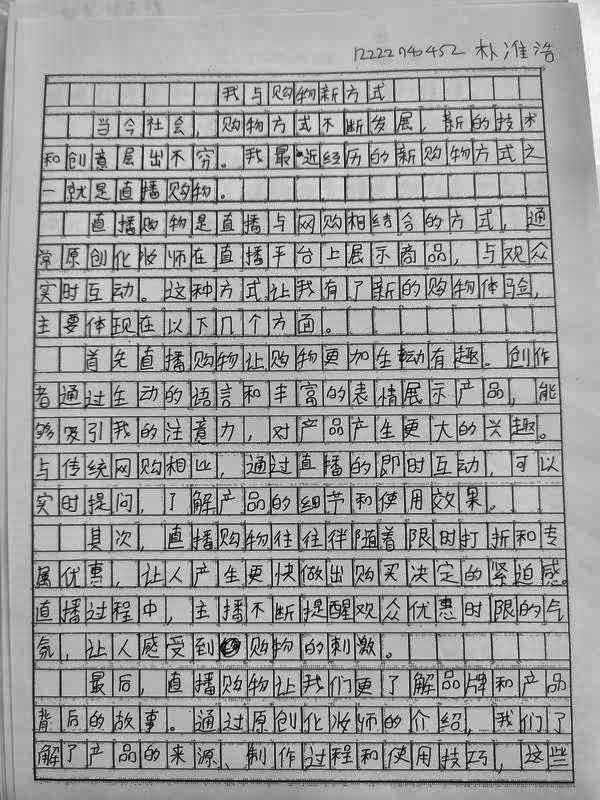 12222740452 朴淮浩
我与购物新方式
当今社会，购物方式不断发展，新的技术
和创意层出不穷。我最近经历的新购物方式之
一就是直播购物。
直播购物是直播与网购相结合的方式，通
常原创化妆师在直播平台上展示商品，与观众
实时互动。这种方式让我有了新的购物体验，
主要体现在以下几个方面。
首先直播购物让购物更加生动有趣。创作
者通过生动的语言和丰富的表情展示产品，能
够吸引我的注意力，对产品产生更大的兴趣。
与传统网购相比，通过直播的即时互动，可以
实时提问，了解产品的细节和使用效果。
其次，直播购物往往伴随着限时打折和专
属优惠，让人产生更快做出购买决定的紧迫感。
直播过程中，主播不断提醒观众优惠时限的气
氛，让人感受到购物的刺激。
最后，直播购物让我们更了解品牌和产品
背后的故事。通过原创化妆师的介绍，我们了
解了产品的来源、制作过程和使用技巧，这些